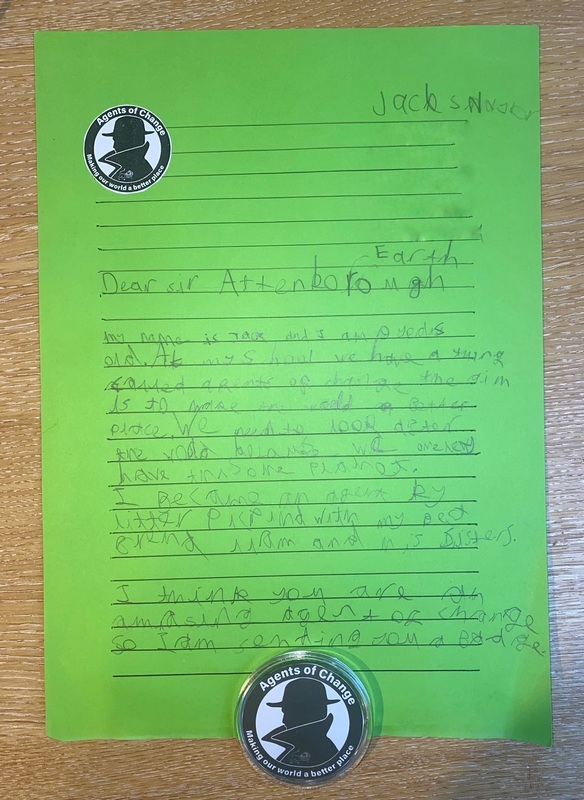 Jack
Agents of Change
Making our world a better place
Earth
Dear sir Attenborough
my name is Jack
old. At my s hool we have a thing
called agents of the aim
is to make the world a better
place. We need to look after
the we
have this one planet.
I became an agent by
litter picking with my best
and his sisters.
I think you are an
amasing agent of change
so I am senting you a badge
Agents of Change
Making our world a better place